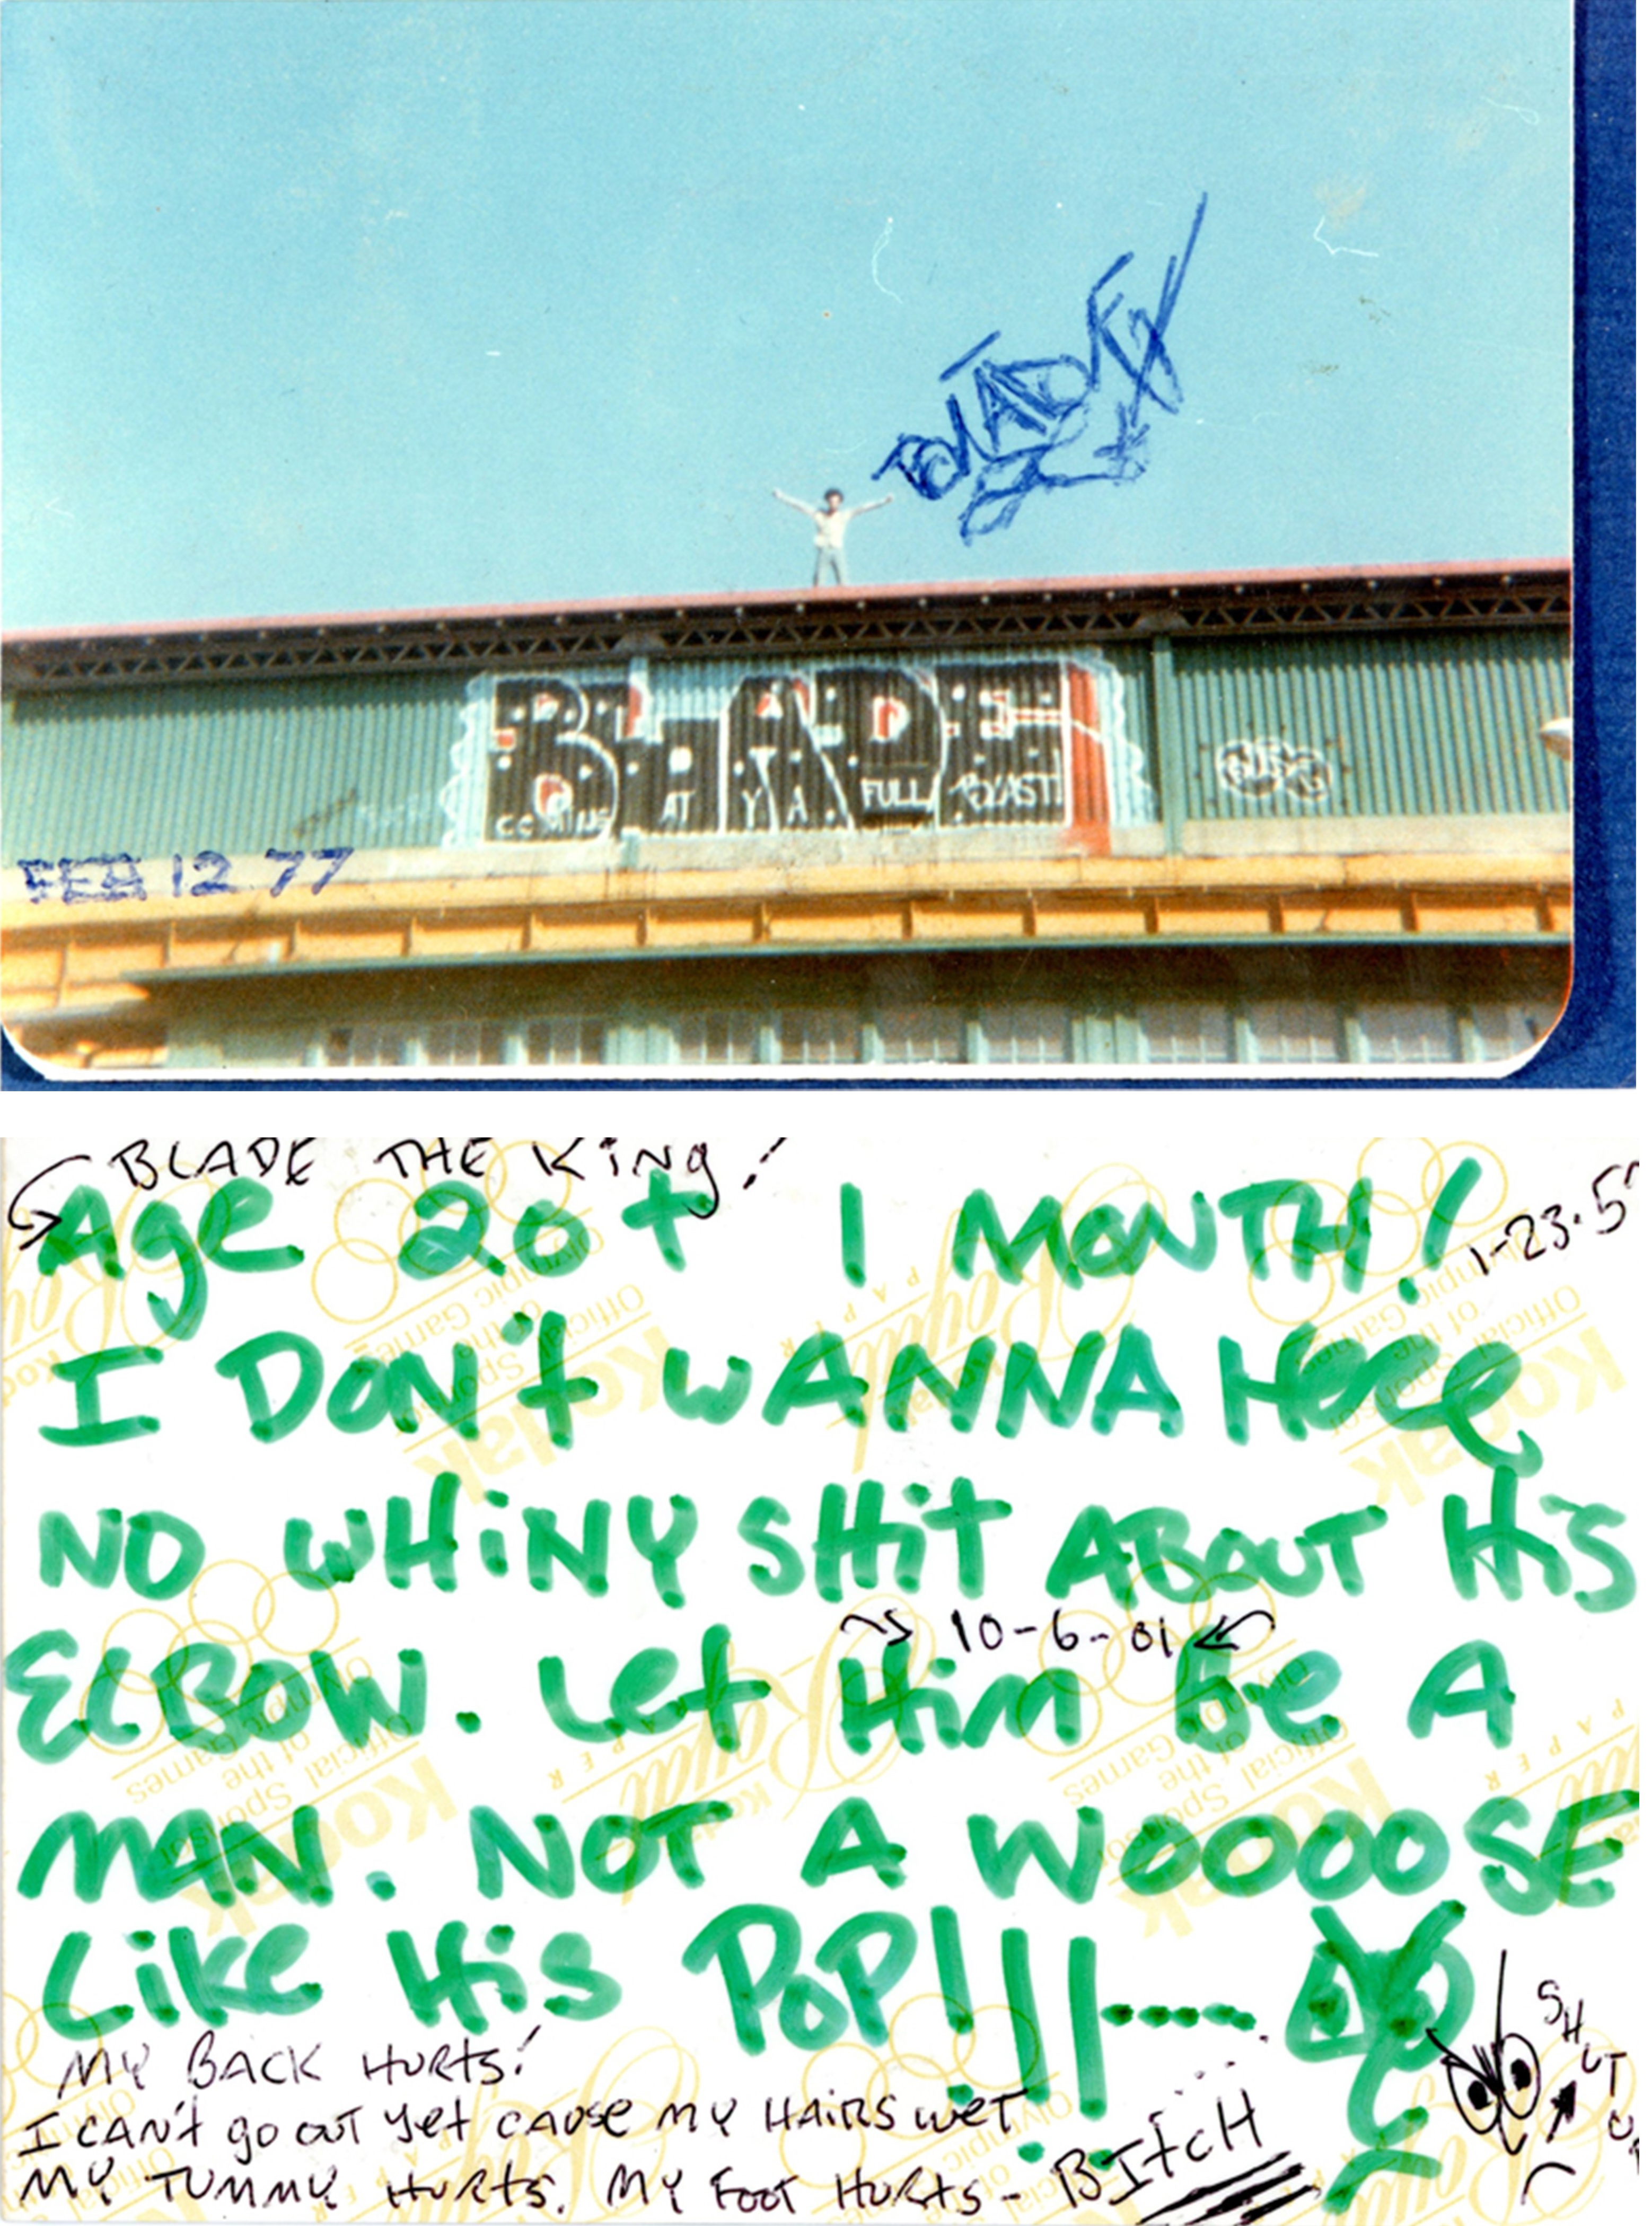 BLADE
BLADE
COMING AT YA. FULL BLAST!
FEB 12 77
BLADE THE KING!
Age 20 + 1 MONTH!
1-23-5
I DON't WANNA Hear
NO WHiNY SHit ABOUT HiS
ELBOW. Let Him be A
10-6-01
MAN. NOT A WOOOOSE
Like His POP!!!
MY BACK HURts!
I CAN't go out yet cause my HAIRS wet
MY TUMMY HURts. MY Foot HURts - BItcH
SHUT UP
Kodak
Official Sponsor
of the
Olympic Games
Kodak
Royal
PAPER